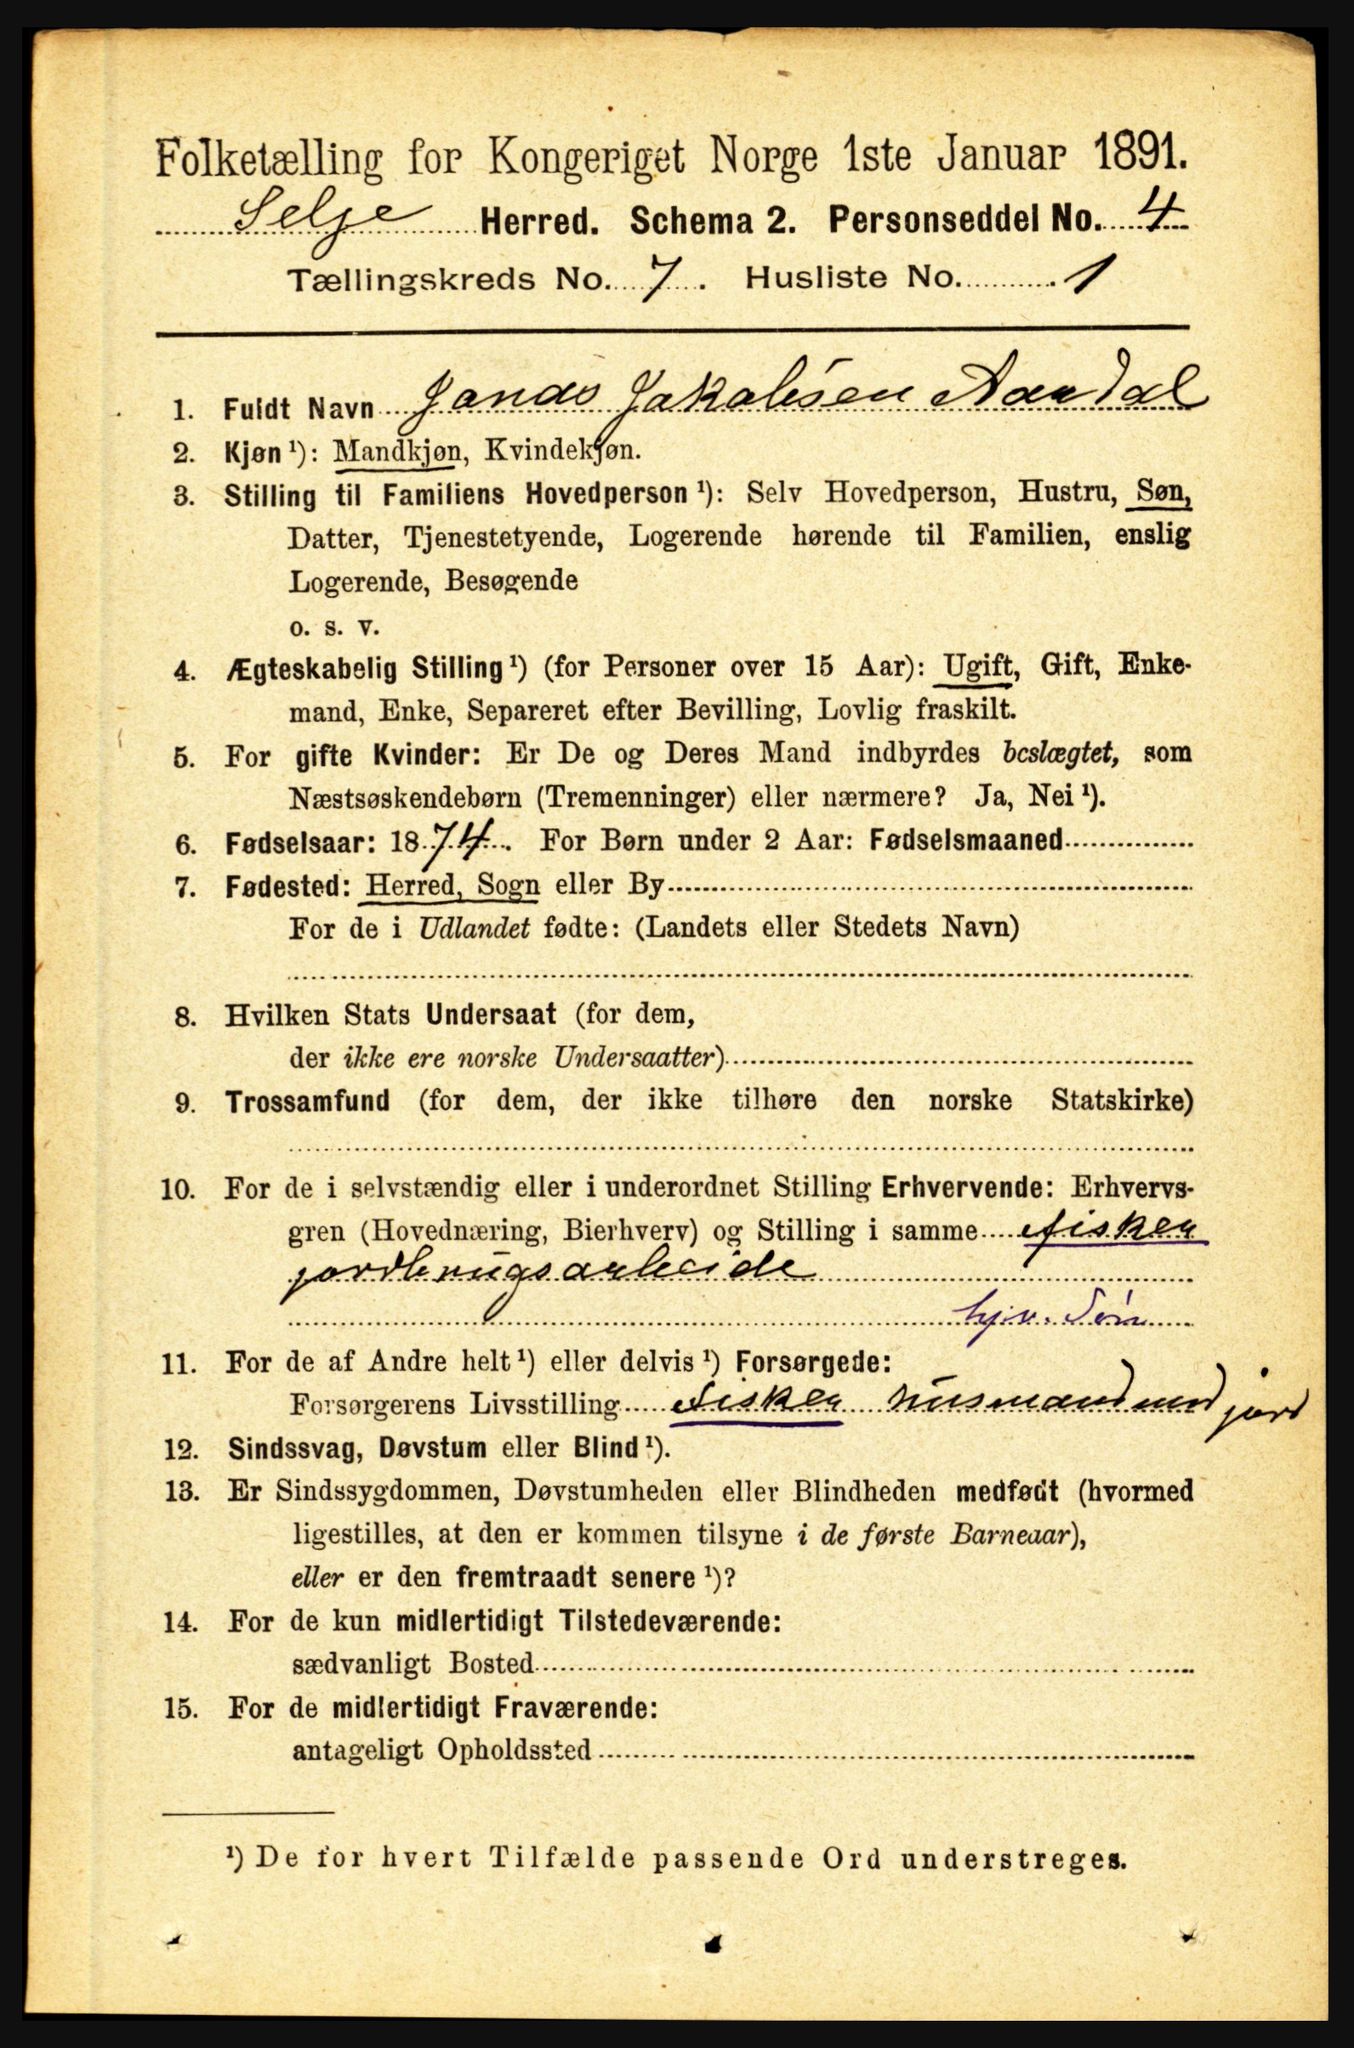 Folketælling for Kongeriget Norge 1ste Januar 1891.
Selje Herred. Schema 2. Personseddel No. 4
Tællingskreds No. 7. Husliste No. 1
1. Fuldt Navn Jonas Jakobsen Aardal
2. Kjøn ¹): Mandkjøn, Kvindekjøn.
3. Stilling til Familiens Hovedperson ¹): Selv Hovedperson, Hustru, Søn,
Datter, Tjenestetyende, Logerende hørende til Familien, enslig
Logerende, Besøgende
o. s. v.
4. Ægteskabelig Stilling ¹) (for Personer over 15 Aar): Ugift, Gift, Enke-
mand, Enke, Separeret efter Bevilling, Lovlig fraskilt.
5. For gifte Kvinder: Er De og Deres Mand indbyrdes beslægtet, som
Næstsøskendebørn (Tremenninger) eller nærmere? Ja, Nei ¹).
6. Fødselsaar: 1874. For Børn under 2 Aar: Fødselsmaaned
7. Fødested: Herred, Sogn eller By
For de i Udlandet fødte: (Landets eller Stedets Navn)
8. Hvilken Stats Undersaat (for dem,
der ikke ere norske Undersaatter)
9. Trossamfund (for dem, der ikke tilhøre den norske Statskirke)
10. For de i selvstændig eller i underordnet Stilling Erhvervende: Erhvervs-
gren (Hovednæring, Bierhverv) og Stilling i samme fisker
jordbrugsarbeide
hjv. Søn
11. For de af Andre helt ¹) eller delvis ¹) Forsørgede:
Forsørgerens Livsstilling fisker husmand med jord
12. Sindssvag, Døvstum eller Blind ¹).
13. Er Sindssygdommen, Døvstumheden eller Blindheden medfødt (hvormed
ligestilles, at den er kommen tilsyne i de første Barneaar),
eller er den fremtraadt senere ¹)?
14. For de kun midlertidigt Tilstedeværende:
sædvanligt Bosted
15. For de midlertidigt Fraværende:
antageligt Opholdssted
¹) De for hvert Tilfælde passende Ord understreges.